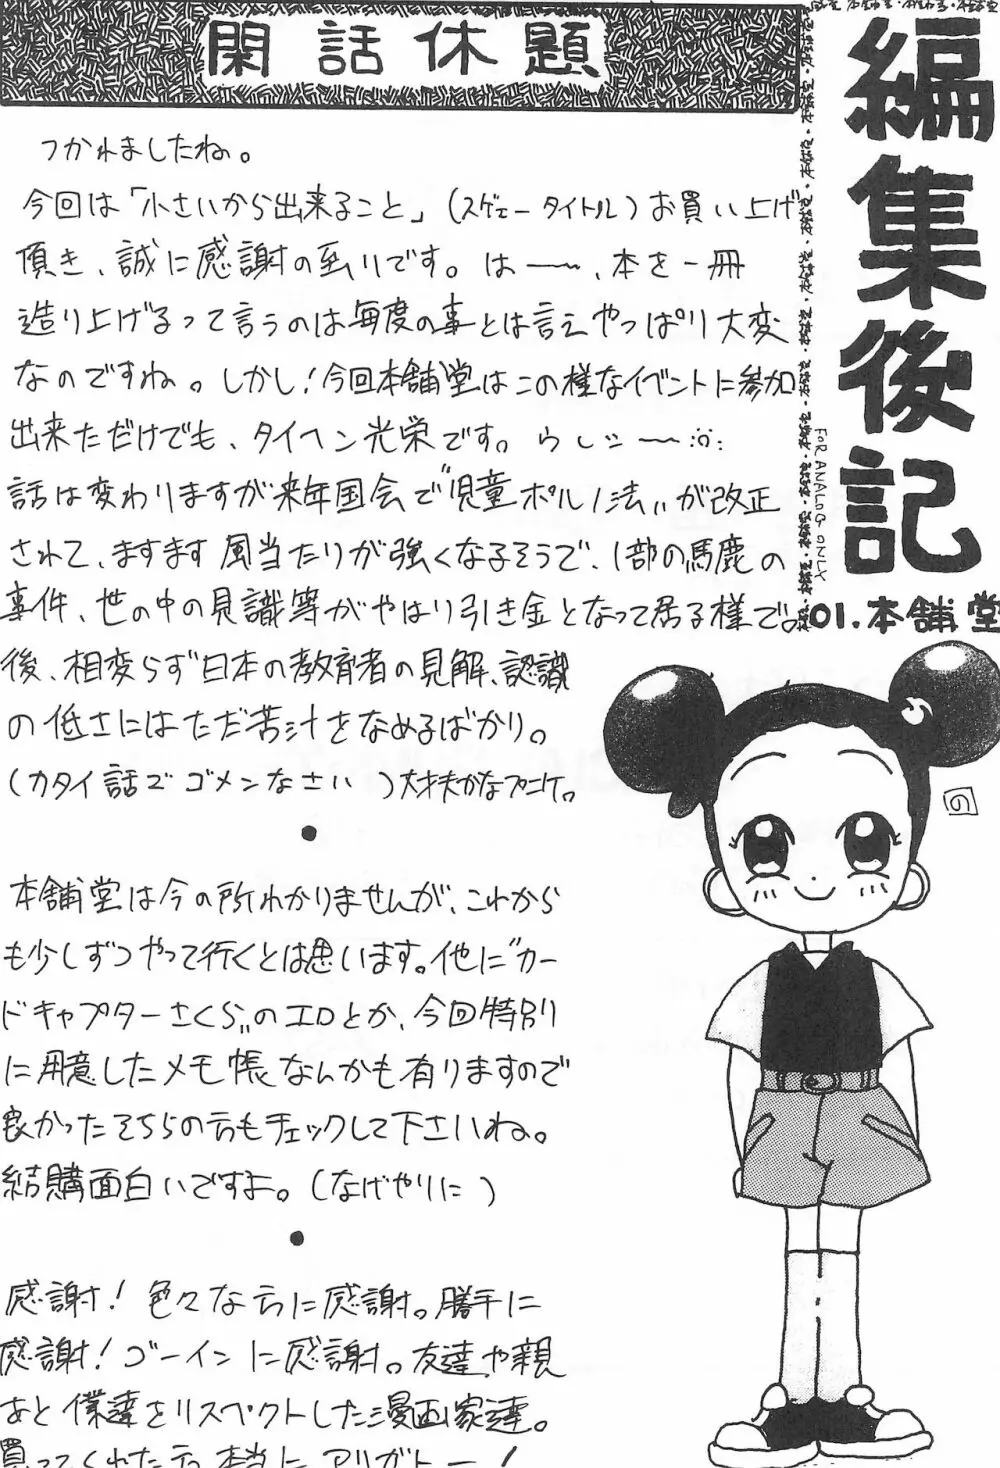 編集後記
FOR ANALOG ONLY
01.本舗堂
閑話休題
つかれましたね。
今回は「小さいから出来ること」(スゲェータイトル)お買い上げ
頂き、誠に感謝の至りです。は〜〜、本を一冊
造り上げるって言うのは毎度の事とは言えやっぱり大変
なのですね。しかし!今回本舗堂はこの様なイベントに参加
出来ただけでも、タイヘン光栄です。うしシ〜〜
話は変わりますが来年国会で"児童ポルノ法"が改正
されて、ますます風当たりが強くなるそうで、1部の馬鹿の
事件、世の中の見識等がやはり引き金となって居る様で。
後、相変らず日本の教育者の見解、認識
の低さにはただ苦汁をなめるばかり。
(カタイ話でゴメンなさい)大丈夫かなプニケ。
●
本舗堂は今の所わかりませんが、これから
も少しずつやって行くとは思います。他に"カー
ドキャプターさくら"のエロとか、今回特別
に用意したメモ帳なんかも有りますので
良かったそちらの方もチェックして下さいね。
結購面白いですよ。(なげやりに)
●
感謝!色々な方に感謝。勝手に
感謝!ゴーインに感謝。友達や親
あと僕達をリスペクトした漫画家達。
買ってくれた方本当にアリガトー!
の